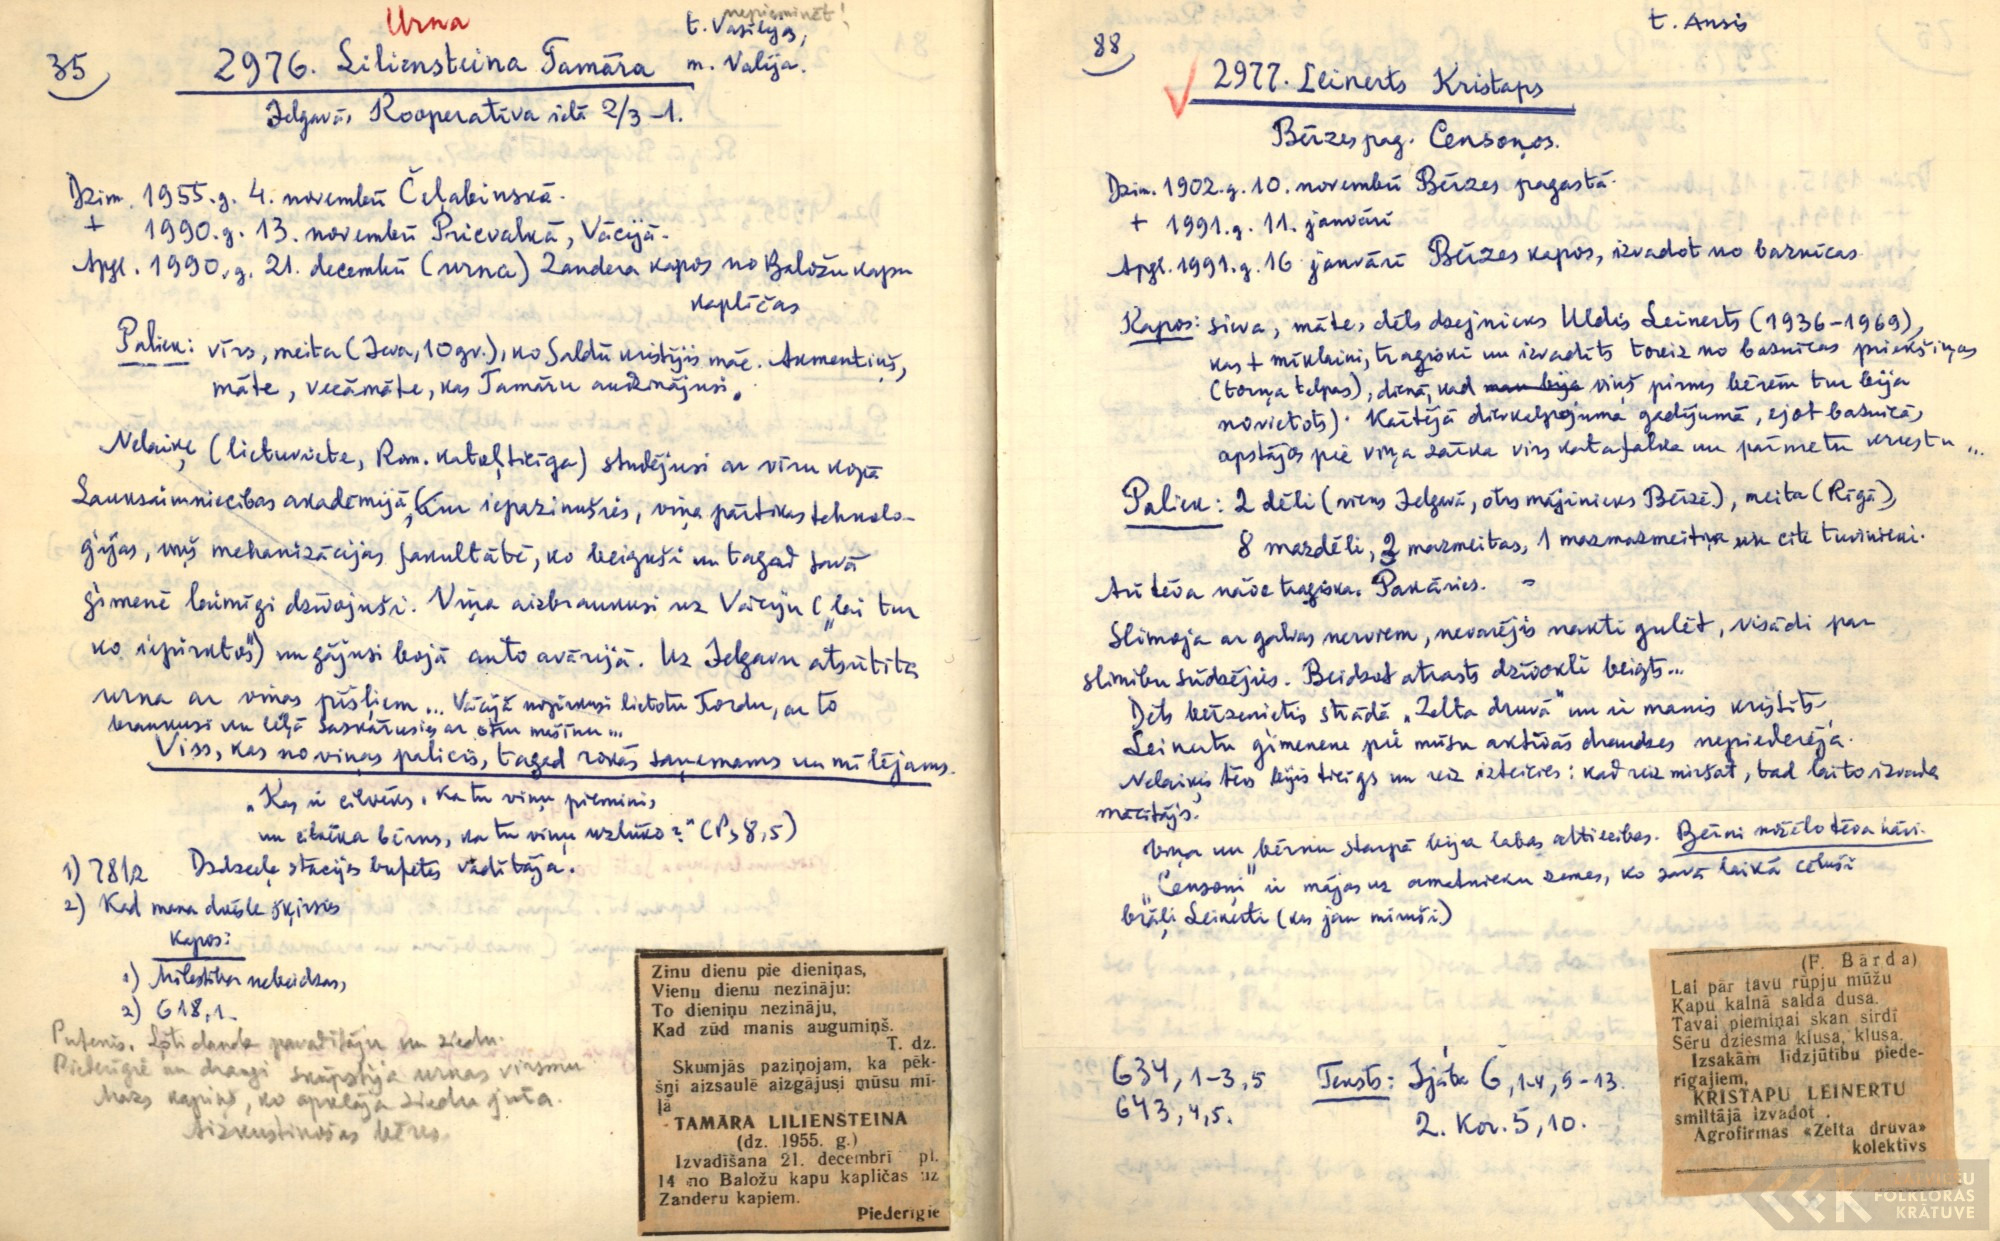 Urna
nepieminēt!
t. Vasīlijs,
35) 2976. Liliensteina Tamāra m. Vaļija.
Jelgavā, Kooperatīva ielā 2/3 -1.
Dzim. 1955.g. 4. novembrī Čeļabinskā.
+ 1990.g. 13. novembrī Prievalkā, Vācijā.
Apgl. 1990.g. 21. decembrī (urna) Zandera kapos no Baložu kapu
kaplīčas
Paliek: vīrs, meita (Ieva, 10 gv.), ko Saldū kristījis māc. Akmentiņš,
māte, vecāmāte, kas Tamāru audzinājusi.
Nelaiķe (lietuviete, Rom. katoļticīga) studējusi ar vīru kopā
Lauksaimniecības akadēmijā, kur iepazinušies, viņa pārtikas tehnolo-
ģijas, viņš mehanizācijas fakultātē, ko beiguši un tagad savā
ģimenē laimīgi dzīvojuši. Viņa aizbraukusi uz Vāciju ("lai tur
ko iepirktos") un gājusi bojā auto avārijā. Uz Jelgavu atsūtīta
urna ar viņas pīšļiem... Vācijā nopirkusi lietotu Fordu, ar to
braukusi un ceļā saskārusies ar otru mašīnu...
Viss, kas no viņas palicis, tagad rokās saņemams un mīlējams.
"Kas ir cilvēks, ka tu viņu piemini,
un cilvēka bērns, ka tu viņu uzlūko?" (Ps 8,5)
1) 781,2 Dzelzceļa stacijas bufetes vadītāja.
2) Kad mana dvēsle šķirsies
Kapos:
1) Mīlestība nebeidzas,
2) 618,1.
Putenis. Ļoti daudz pavadītāju un ziedu.
Piederīgie un draugi skūpstīja urnas virsmu.
Mazs kapiņš, ko apklāja ziedu jūra.
Aizkustinošas bēres.
Zinu dienu pie dieniņas,
Vienu dienu nezināju:
To dieniņu nezināju,
Kad zūd manis augumiņš.
T. dz.
Skumjās paziņojam, ka pēk-
šņi aizsaulē aizgājusi mūsu mī-
ļā
TAMĀRA LILIENSTEINA
(dz. 1955. g.)
Izvadīšana 21. decembrī pl.
14 no Baložu kapu kapličas uz
Zanderu kapiem.
Piederīgie
t. Ansis
88) 2977. Leinerts Kristaps
Bērzes pag. Censoņos.
Dzim. 1902.g. 10. novembrī Bērzes pagastā.
+ 1991.g. 11. janvārī
Apgl. 1991.g. 16 janvārī Bērzes kapos, izvadot no baznīcas
Kapos: sieva, māte, dēls dzejnieks Uldis Leinerts (1936-1969),
kas + mīklaini, traģiski un izvadīts toreiz no baznīcas priekštiņas
(torņa telpas), dienā, kad man bija viņš pirms bērēm tur bija
novietots). Kārtējā dievkalpojuma gadījumā, ejot baznīcā,
apstājos pie viņa zārka virs katafalka un pārmetu krustu...
Paliek: 2 dēli (viens Jelgavā, otrs mājinieks Bērzē), meita (Rīgā),
8 mazdēli, 2 mazmeitas, 1 mazmazmeitiņa un citi tuvinieki.
Arī tēva nāve traģiska. Pakāries.
Slimoja ar galvas nerviem, nevarējis naktī gulēt, visādi par
slimību sūdzējies. Beidzot atrasts dzīvoklī beigts...
Dēls bērzenietis strādā "Zelta druvā" un ir manis kristīts.
Leinertu ģimene pie mūsu aktīvās draudzes nepiederēja.
Nelaiķis tēvs bijis ticīgs un reiz izteicies: kad reiz miršot, tad lai to izvada
mācītājs.
Viņa un bērnu starpā bija labas attiecības. Bērni nožēlo tēva nāvi.
"Censoņi" ir mājas uz amatnieku zemes, ko savā laikā cēluši
brāļi Leinerti (kas jau miruši)
634, 1-3, 5 Teksts: Ījāba 6, 1-4, 9-13.
643, 4, 5. 2. Kor. 5, 10.
(F. Bārda)
Lai pār tavu rūpju mūžu
Kapu kalnā salda dusa.
Tavai piemiņai skan sirdī
Sēru dziesma klusa, klusa.
Izsakām līdzjūtību piede-
rīgajiem,
KRISTAPU LEINERTU
smiltājā izvadot.
Agrofirmas «Zelta druva»
kolektīvs
FOLKLORAS
KRĀTUVE